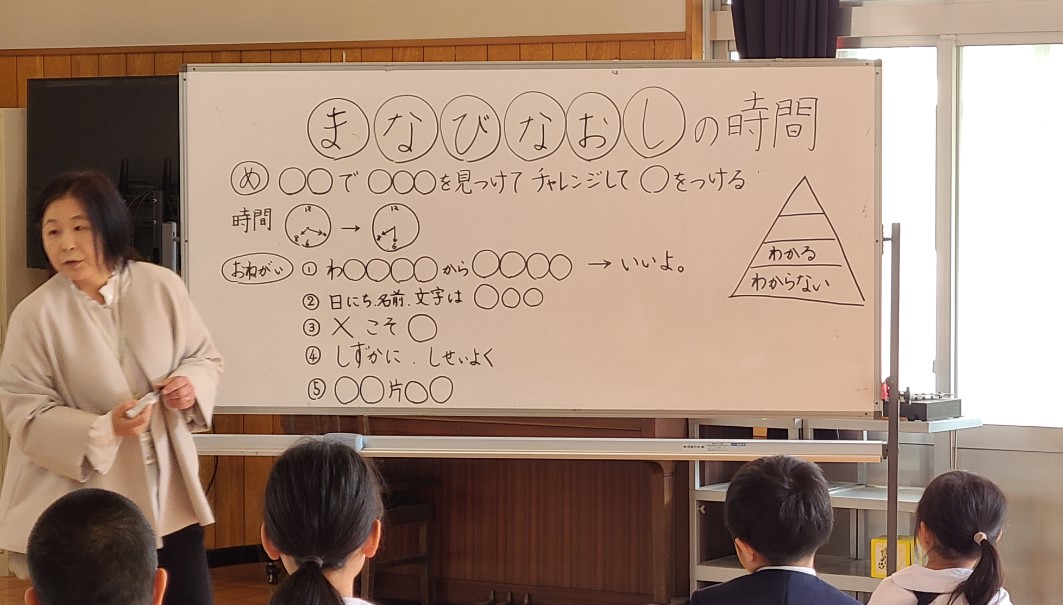 まなびなおしの時間
め ○○で ○○○を見つけて チャレンジして ○をつける
時間 → 
おねがい ① わ○○○○から○○○○ → いいよ。
② 日にち、名前、文字は ○○○
③ × こそ ○
④ しずかに、しせいよく
⑤ ○○片○○
わかる
わからない